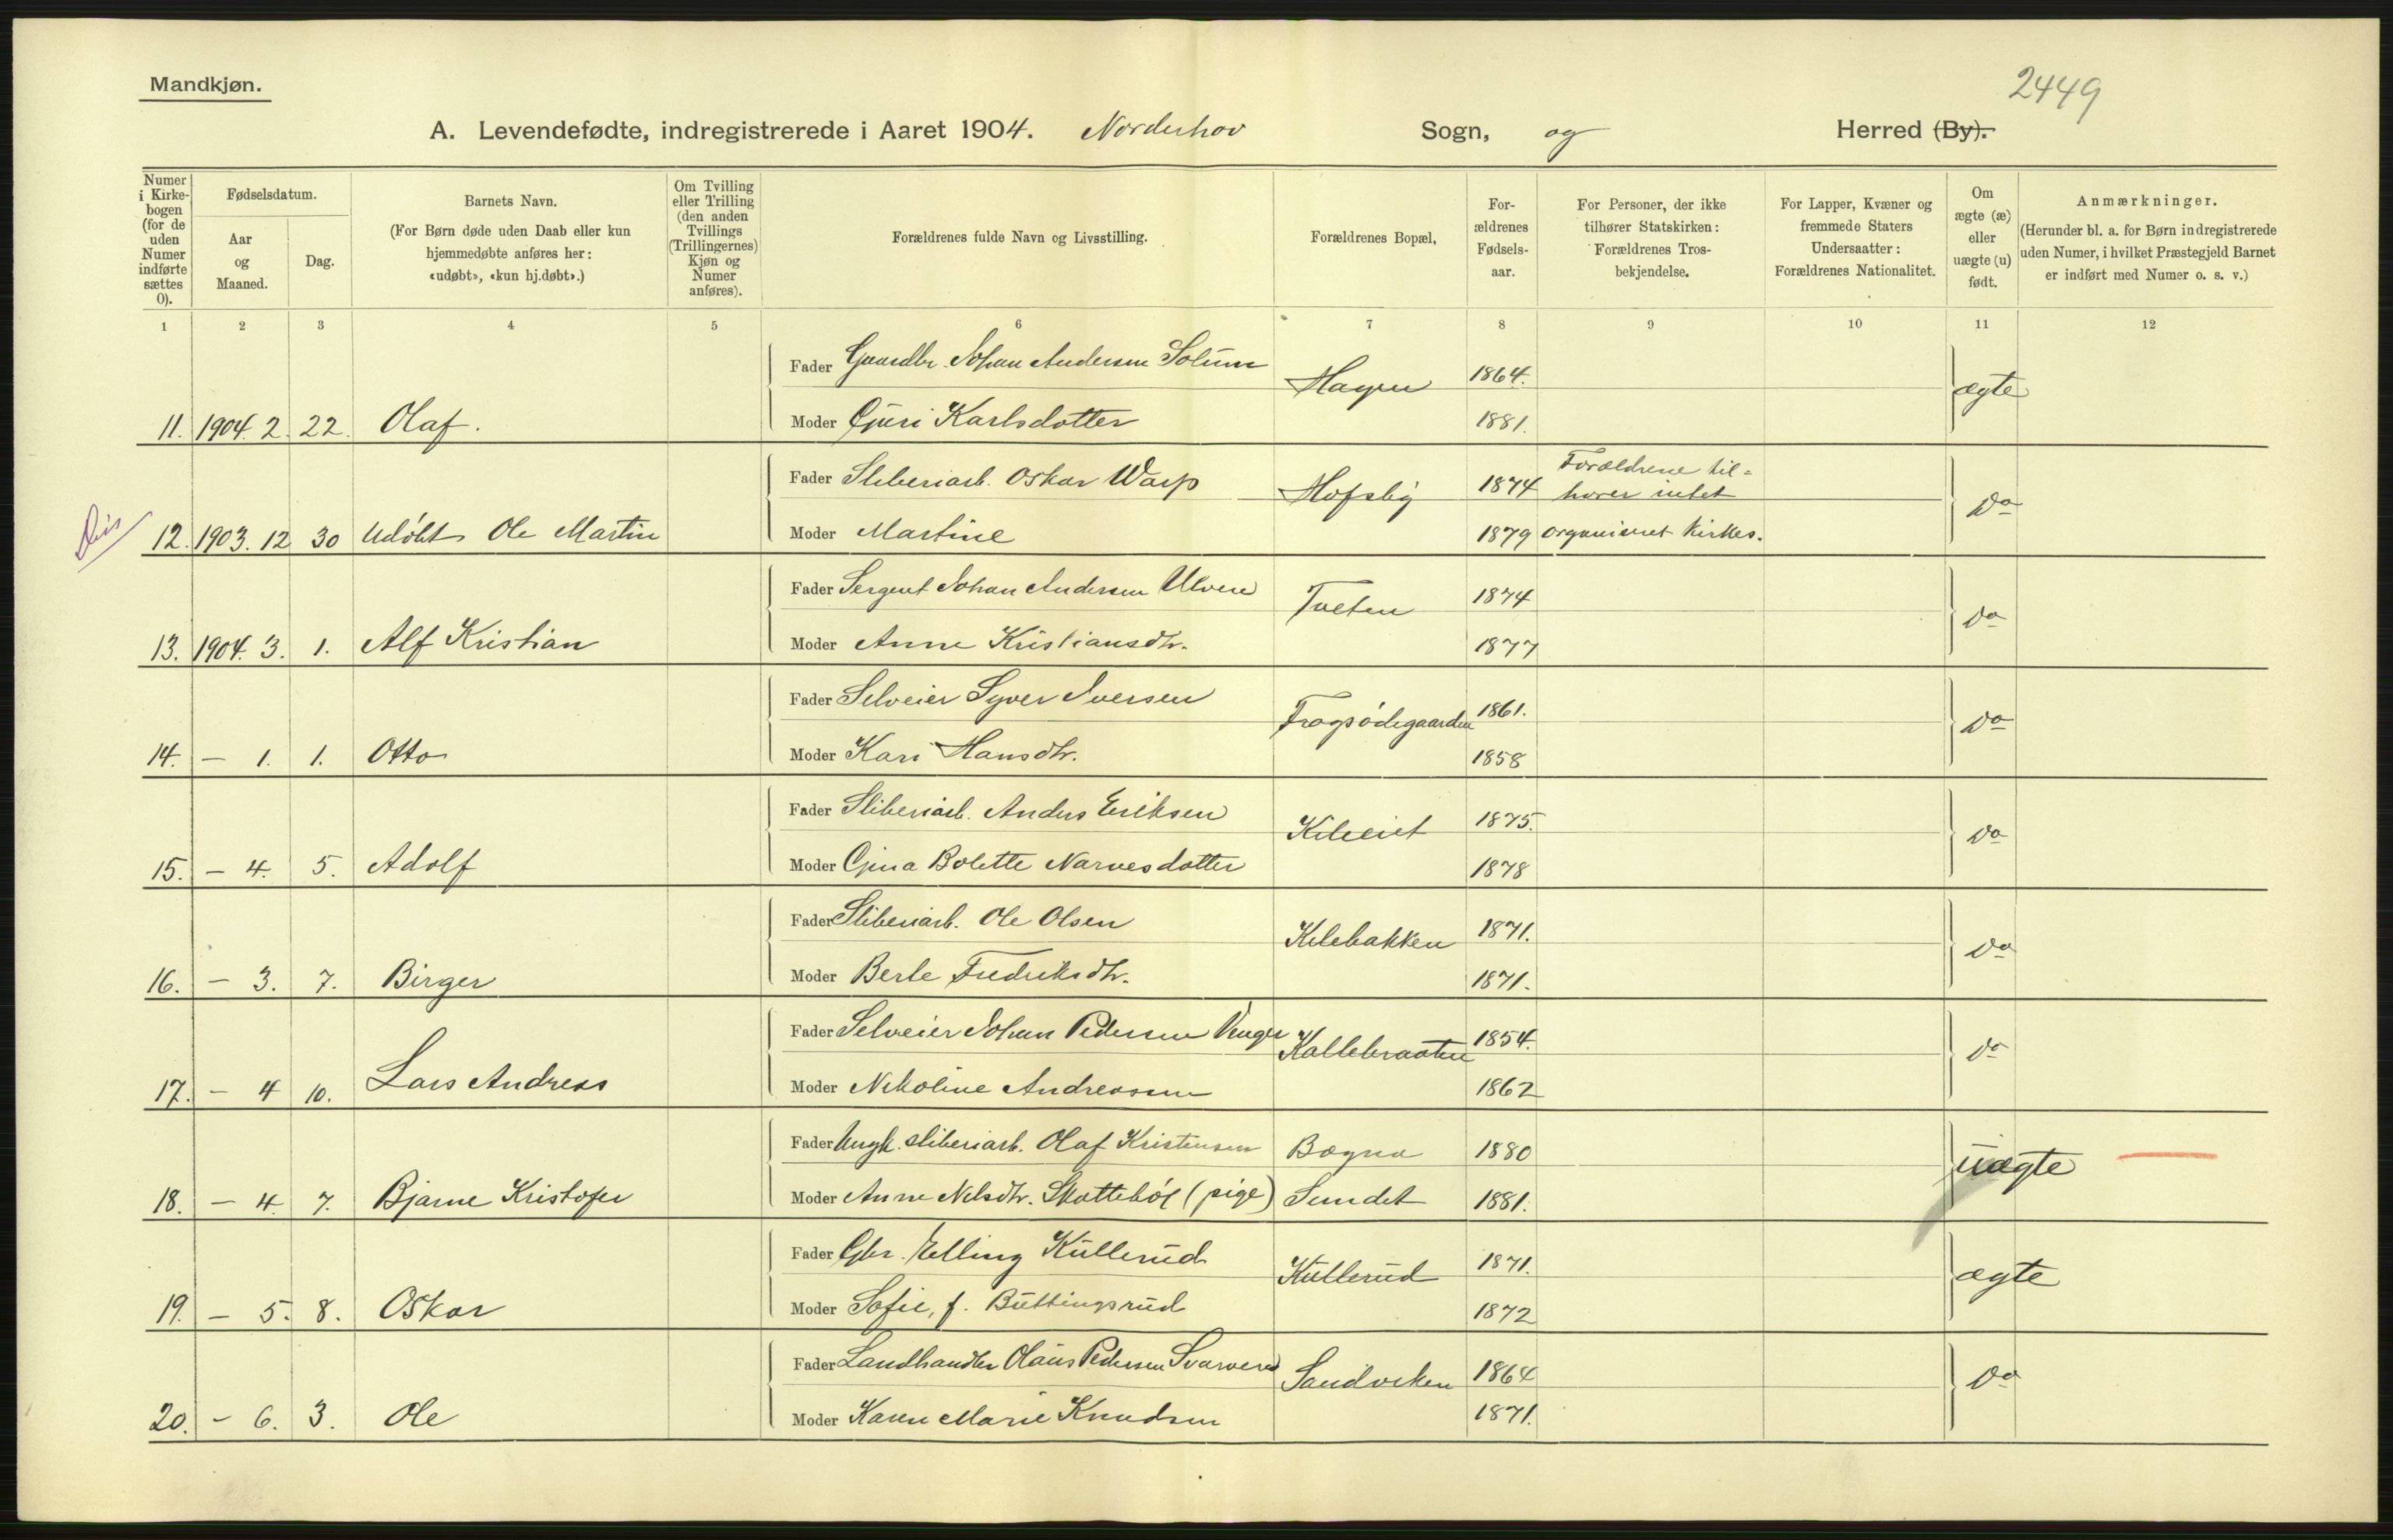 Mandkjøn.
2449
A. Levendefødte, indregistrerede i Aaret 1904. Norderhov Sogn, og Herred (By).
Numer i Kirke-bogen (for de uden Numer indførte sættes 0).
Fødselsdatum.
Aar og Maaned.
Dag.
Barnets Navn.
(For Børn døde uden Daab eller kun hjemmedøbte anføres her: «udøbt», «kun hj.døbt».)
Om Tvilling eller Trilling (den anden Tvillings (Trillingernes) Kjøn og Numer anføres).
Forældrenes fulde Navn og Livsstilling.
Forældrenes Bopæl,
For-ældrenes Fødsels-aar.
For Personer, der ikke tilhører Statskirken: Forældrenes Tros-bekjendelse.
For Lapper, Kvæner og fremmede Staters Undersaatter: Forældrenes Nationalitet.
Om ægte (æ) eller uægte (u) født.
Anmærkninger.
(Herunder bl. a. for Børn indregistrerede uden Numer, i hvilket Præstegjeld Barnet er indført med Numer o. s. v.)
1 2 3 4 5 6 7 8 9 10 11 12
Fader Gaardbr. Johan Andersen Solum Hagen 1864. ægte
11. 1904. 2. 22. Olaf. Moder Guri Karlsdotter 1881.
Fader Sliberiarb. Oskar Warp Hofsby 1874 Forældrene til=
hører intet Do
12. 1903. 12 30 Udøbt Ole Martin Moder Martine 1879 organiseret Kirkes.
Fader Sergent Johan Andersen Ulven Tveten 1874 Do
13. 1904. 3. 1. Alf Kristian Moder Anne Kristiansdtr. 1877
Fader Selveier Syver Iversen Frogsødegaarden 1861. Do
14. — 1. 1. Otto Moder Kari Hansdtr. 1858
Fader Sliberiarb. Anders Eriksen Kileeiet 1875. Do
15. — 4. 5. Adolf Moder Gina Bolette Narvesdotter 1878
Fader Sliberiarb. Ole Olsen Kilebakken 1871. Do
16. — 3. 7. Birger Moder Berte Fredriksdtr. 1871.
Fader Selveier Johan Pedersen Venger Kallebraaten 1854. Do
17. — 4 10. Lars Andreas Moder Nikoline Andreassen 1862
Fader Ungk. sliberiarb. Olaf Kristensen Bægna 1880 uægte
18. — 4. 7. Bjarne Kristofer Moder Anne Nilsdtr. Skottebøl (pige) Sundet 1881.
Fader Gbr. Elling Kullerud Kullerud 1871. ægte
19. — 5. 8. Oskar Moder Sofie, f. Buttingsrud 1872
Fader Landhandler Olaus Pedersen Svarverud Sandviken 1864 Do
20. — 6. 3. Ole Moder Karen Marie Knudsen 1871.